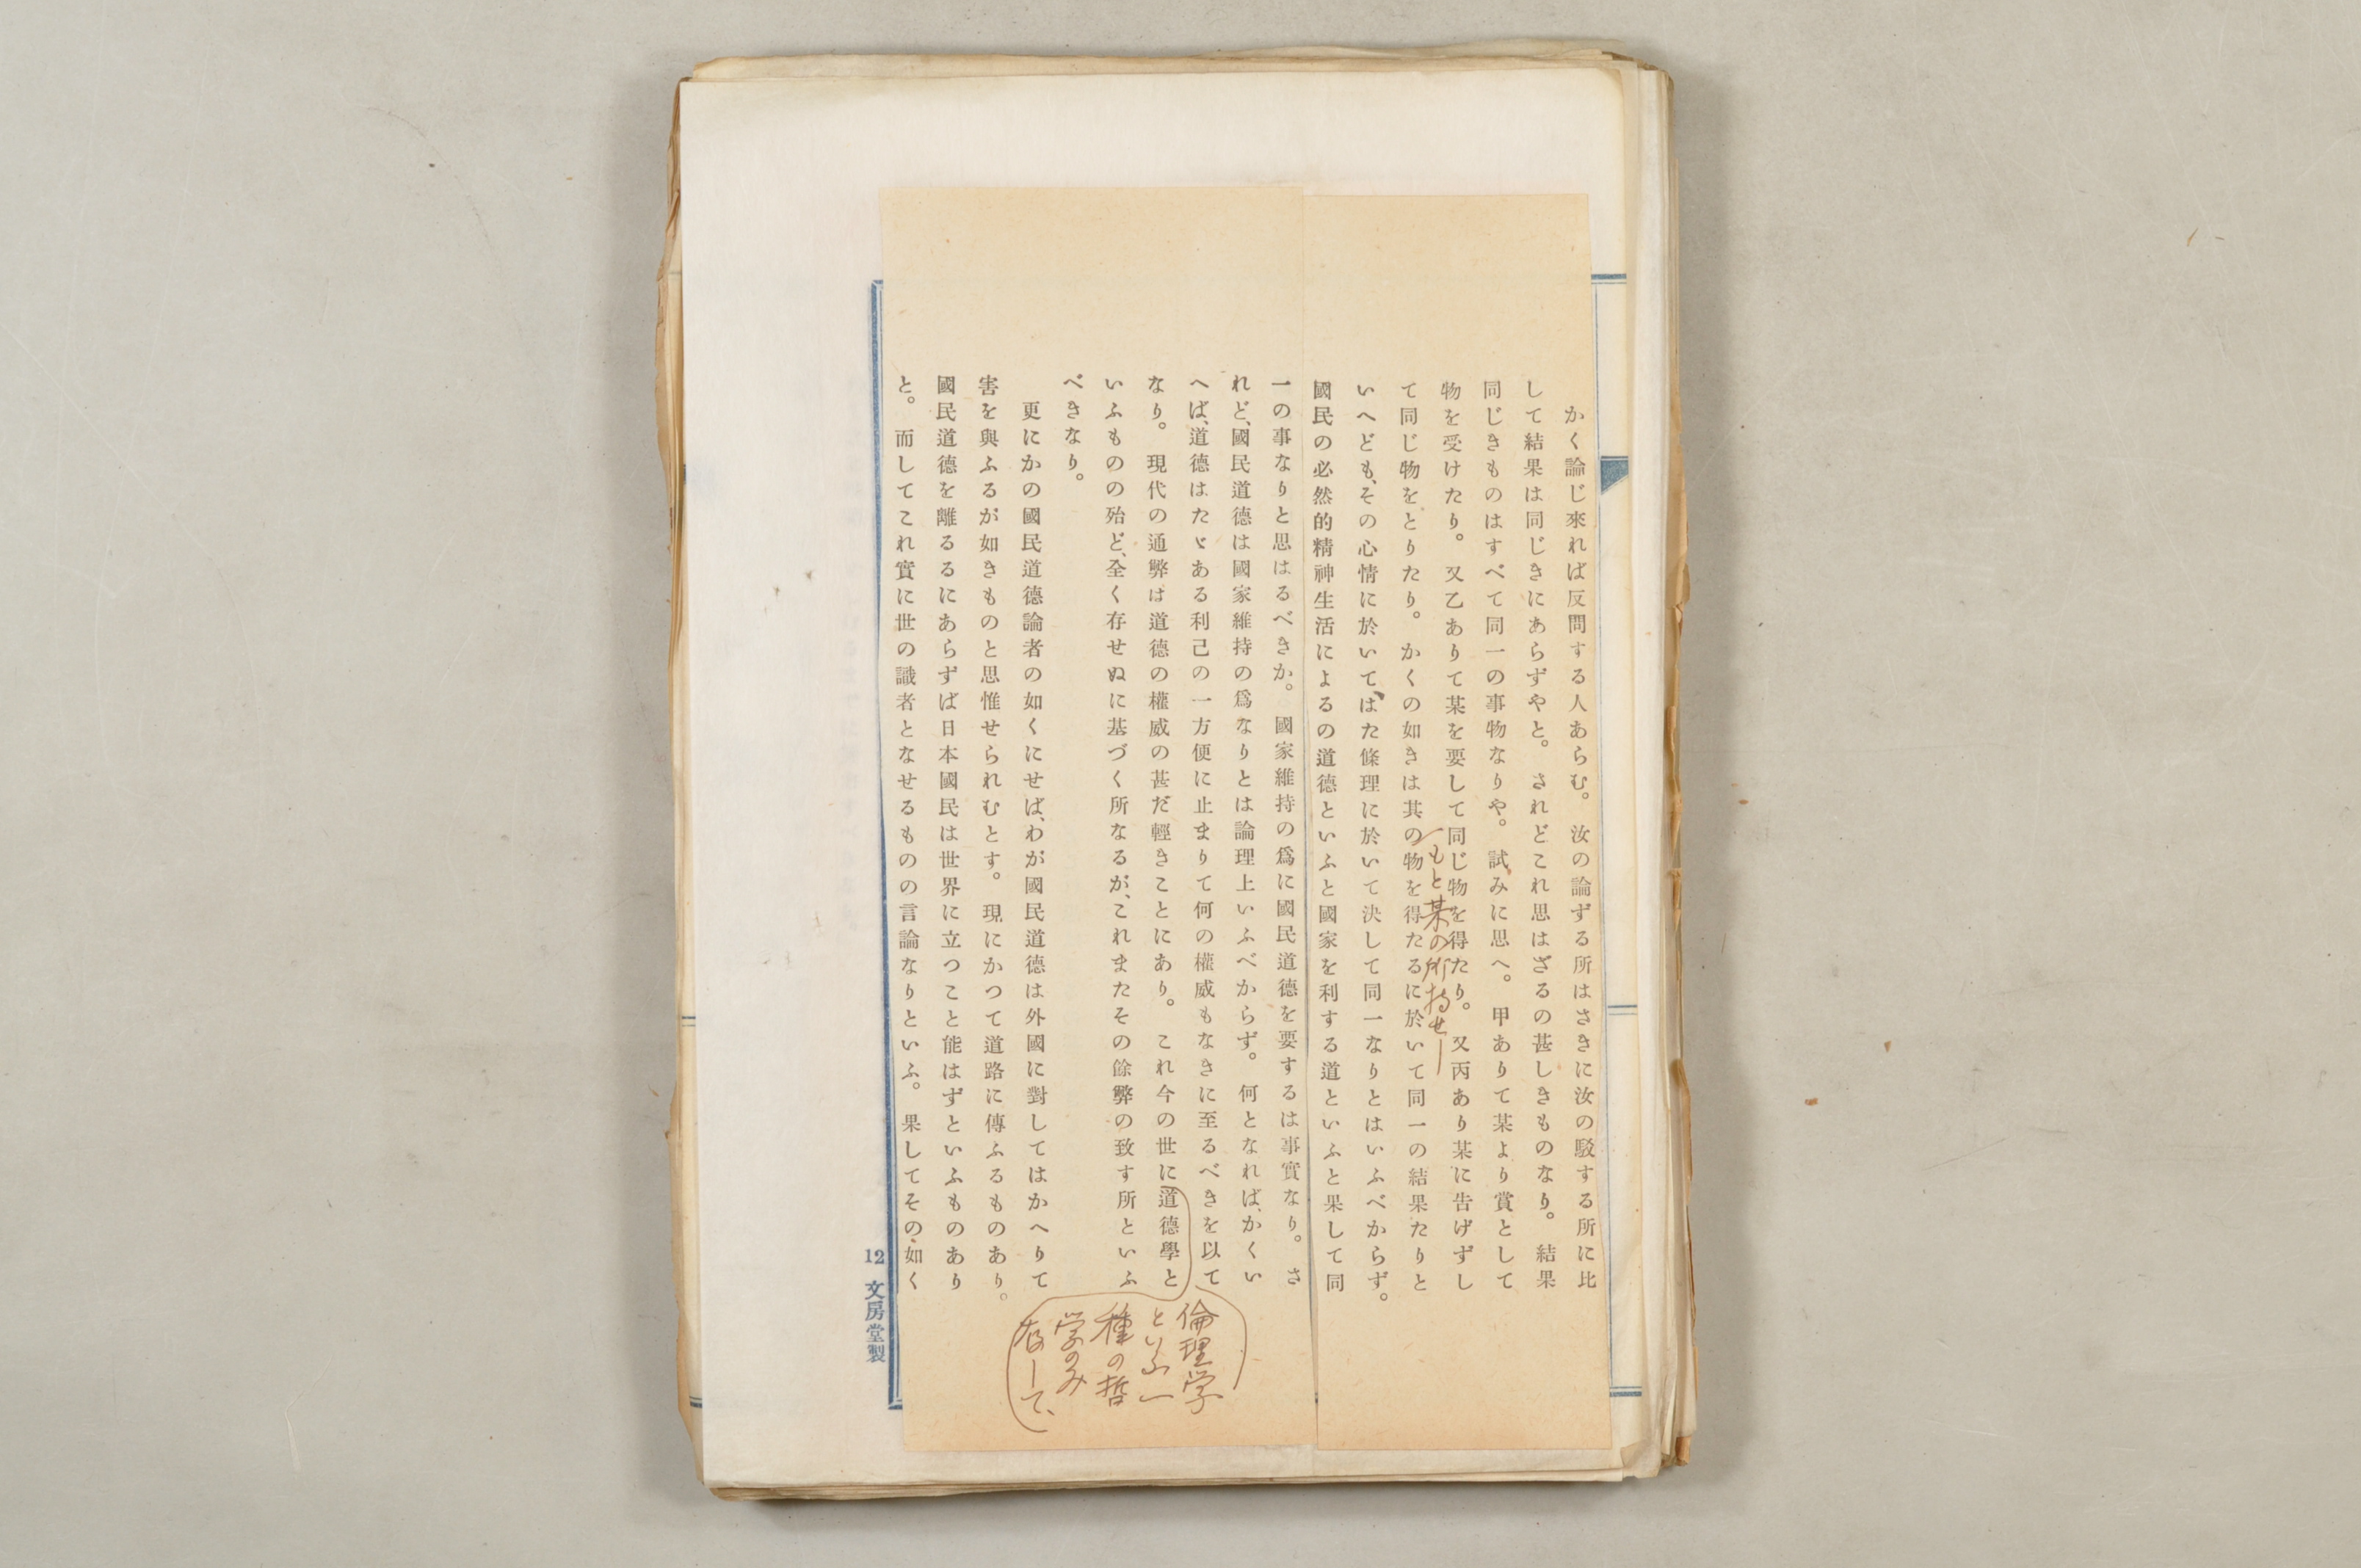 かく論じ來れば反問する人あらむ。汝の論ずる所はさきに汝の駁する所に比
して結果は同じきにあらずやと。されどこれ思はざるの甚しきものなり。結果
同じきものはすべて同一の事物なりや。試みに思へ。甲ありて某より賞として
物を受けたり。又乙ありて某を要して同じ物を得たり。又丙あり某に告げずし
もと某の所持せし
て同じ物をとりたり。かくの如きは其の物を得たるに於いて同一の結果たりと
いへども、その心情に於いて、はた條理に於いて決して同一なりとはいふべからず。
國民の必然的精神生活によるの道德といふと國家を利する道といふと果して同
一の事なりと思はるべきか。國家維持の爲に國民道德を要するは事實なり。さ
れど、國民道德は國家維持の爲なりとは論理上いふべからず。何となれば、かくい
へば、道德はたゞある利己の一方便に止まりて何の權威もなきに至るべきを以て
なり。現代の通弊は道德の權威の甚だ輕きことにあり。これ今の世に道德學と
いふものの殆ど、全く存せぬに基づく所なるが、これまたその餘弊の致す所といふ
べきなり。
倫理学
といふ一
種の哲
学のみ
存して、
更にかの國民道德論者の如くにせば、わが國民道德は外國に對してはかへりて
害を與ふるが如きものと思惟せられむとす。現にかつて道路に傳ふるものあり。
國民道德を離るるにあらずば日本國民は世界に立つこと能はずといふものあり
と。而してこれ實に世の識者となせるものの言論なりといふ。果してその如く
12 文房堂製